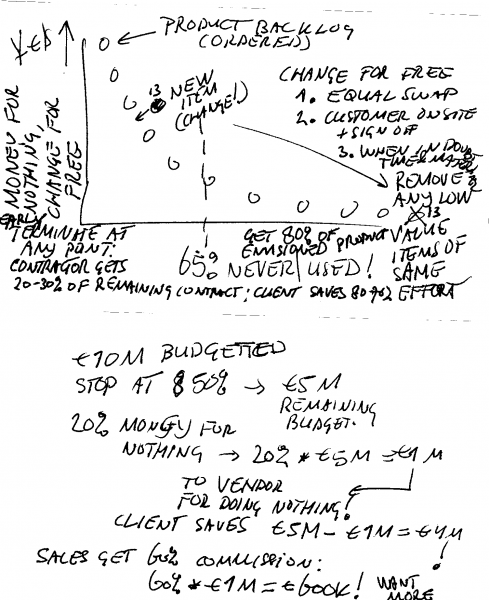 ¥€$
PRODUCT BACKLOG
(ORDERED)
MONEY FOR
NOTHING,
CHANGE FOR
FREE
13
NEW
ITEM
(CHANGE!)
CHANGE FOR FREE
1. EQUAL SWAP
2. CUSTOMER ON SITE
+ SIGN OFF
3. WHEN IN DOUBT
REMOVE
ANY LOW
13
VALUE
ITEMS OF
SAME
EFFORT
EARLY
TERMINATE AT
ANY POINT:
CONTRACTOR GETS
20-30% OF REMAINING CONTRACT; CLIENT SAVES 80-70%
GET 80% OF
ENVISIONED PRODUCT
65% NEVER USED!
€10M BUDGETTED
STOP AT 50% → €5M
REMAINING
BUDGET.
20% MONEY FOR
NOTHING → 20% * €5M = €1M
TO VENDOR
FOR DOING NOTHING!
CLIENT SAVES €5M - €1M = €4M!
SALES GET 60% COMMISSION:
60% * €1M = €600K! WANT
MORE